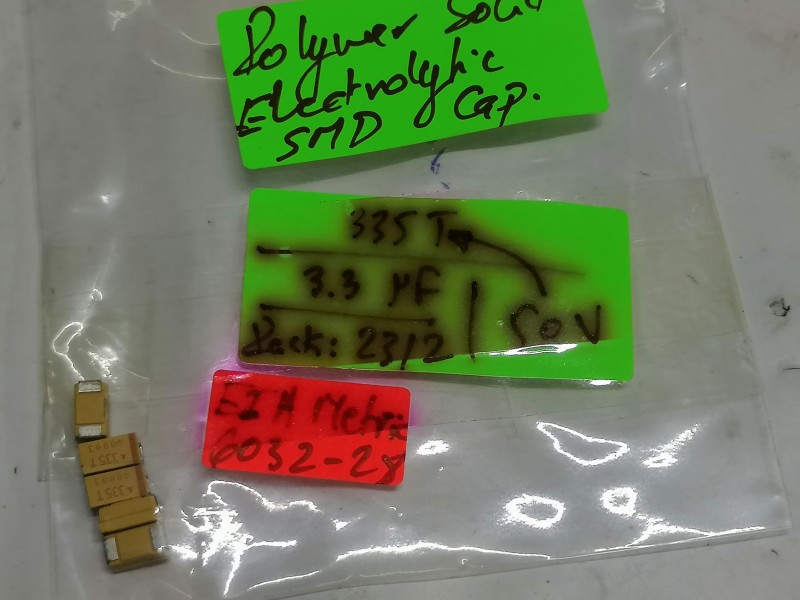 Polymer Solid
Electrolytic
SMD Cap.
335T
3.3 µF
50V
Pack: 2312
EIA Metric
6032-28
335T
335T